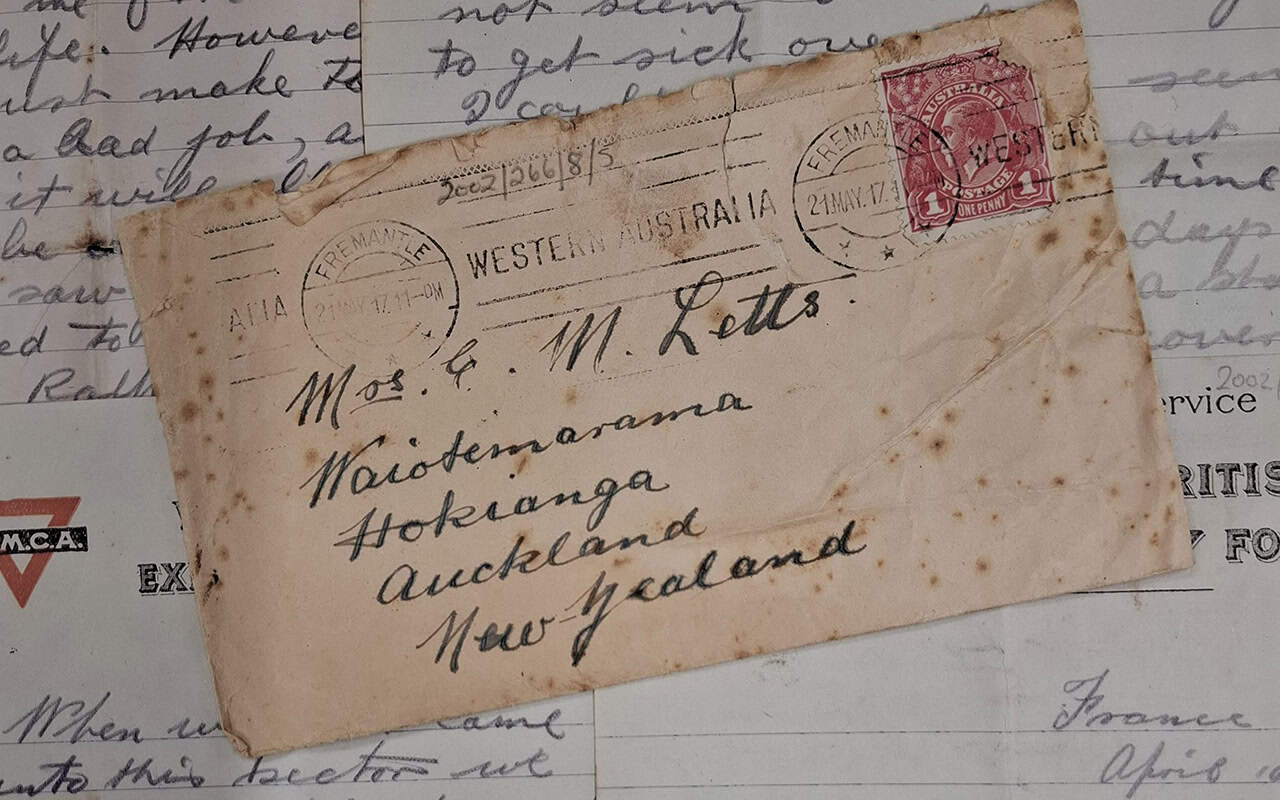 me of the
not seem
life. Howeve
to get sick ove
just make to
I
a bad job, a
it will
be
saw
ed to
seem
out
time
days
a
over
2002/266/8/5
AUSTRALIA
POSTAGE
1
ONE PENNY
1
FREMANTLE
21 MAY. 17.
WESTERN
WESTERN AUSTRALIA
FREMANTLE
21 MAY 17. 11-
ALIA
Mrs. C. M. Letts.
Waiotemarama
Hokianga
Auckland
New Zealand
2002/
ervice
RITIS
Y FO
M.C.A.
EX
When w
came
into this sector we
France
April 10